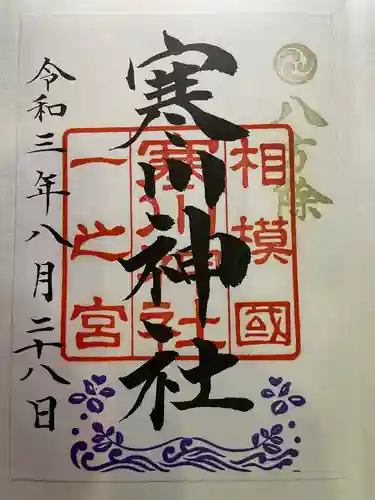 八方除
相模國
寒川神社
一之宮
寒川神社
令和三年八月二十八日